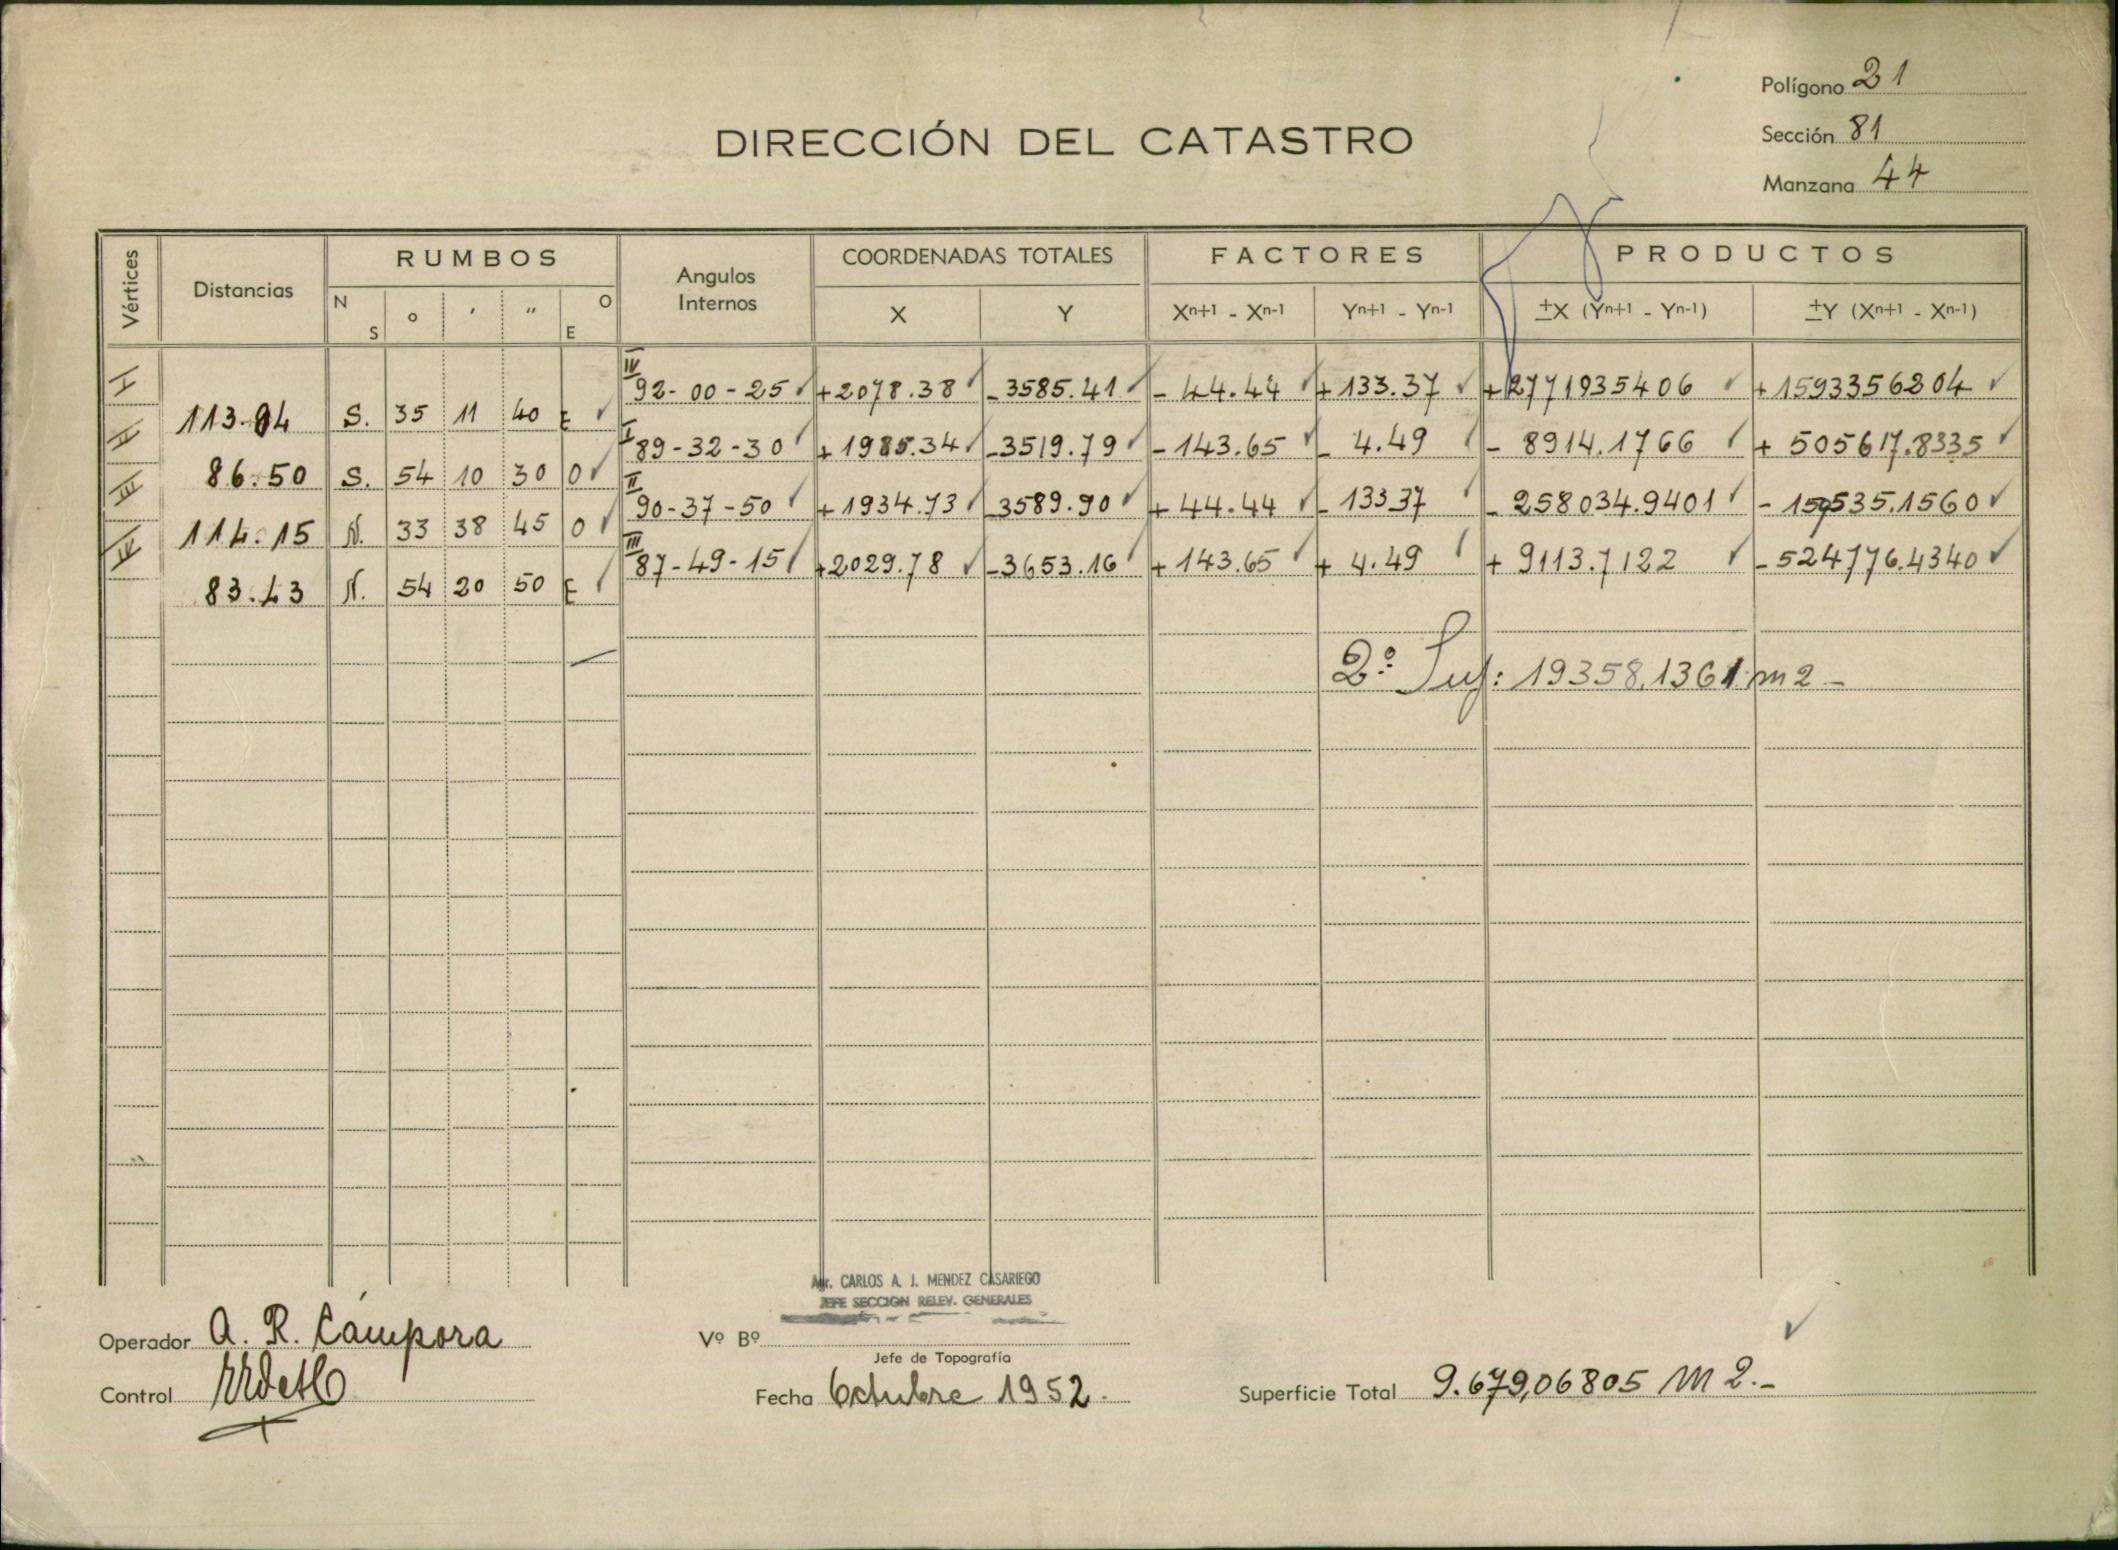 Polígono 21
DIRECCIÓN DEL CATASTRO
Sección 81
Manzana 44
Vértices Distancias RUMBOS Angulos Internos COORDENADAS TOTALES FACTORES PRODUCTOS
N S ° ' " E O X Y Xn+1 - Xn-1 Yn+1 - Yn-1 ±X (Yn+1 - Yn-1) ±Y (Xn+1 - Xn-1)
I IV 92-00-25 +2078.38 -3585.41 -44.44 +133.37 +2771935406 +1593356204
113.94 S. 35 11 40 E
II I 89-32-30 +1985.34 -3519.79 -143.65 -4.49 -8914.1766 +505617.8335
86.50 S. 54 10 30 O
III II 90-37-50 +1934.73 3589.90 +44.44 -13337 -258034.9401 -159535.1560
114.15 N. 33 38 45 O
IV III 87-49-15 +2029.78 -3653.16 +143.65 +4.49 +9113.7122 -524776.4340
83.43 N. 54 20 50 E
2º Sup: 19358,1361 m2-
Agr. CARLOS A. J. MENDEZ CASARIEGO
JEFE SECCION RELEV. GENERALES
Operador A. R. Cámpora
Vº Bº
Jefe de Topografía
Control
Fecha Octubre 1952.
Superficie Total 9.679,06805 M2.-